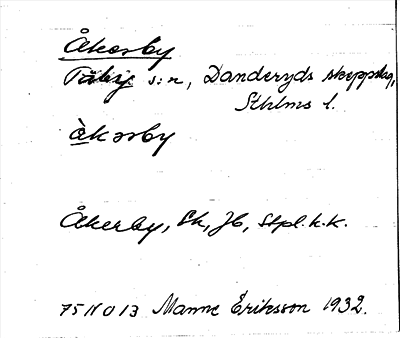 Åkerby
Täby s:n, Danderyds skeppslag,
Sthlms l.
àkərby
Åkerby, Sk, Jb, Stpl. k.k.
75 N O 13 Manne Eriksson 1932.